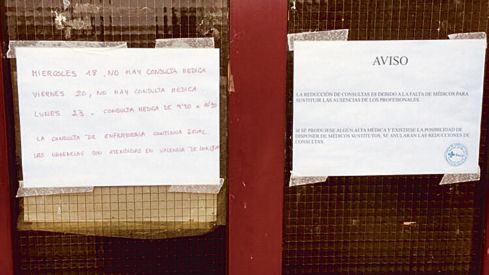 MIERCOLES 18, NO HAY CONSULTA MEDICA
VIERNES 20, NO HAY CONSULTA MEDICA
LUNES 23 - CONSULTA MEDICA DE 9'30 a
LA CONSULTA DE ENFERMERIA CONTINUA IGUAL
LAS URGENCIAS SON ATENDIDAS EN VALENCIA DE
AVISO
LA REDUCCIÓN DE CONSULTAS ES DEBIDO A LA FALTA DE MÉDICOS PARA
SUSTITUIR LAS AUSENCIAS DE LOS PROFESIONALES.
SI SE PRODUJESE ALGUN ALTA MÉDICA Y EXISTIESE LA POSIBILIDAD DE
DISPONER DE MÉDICOS SUSTITUTOS, SE ANULARAN LAS REDUCCIONES DE
CONSULTA.